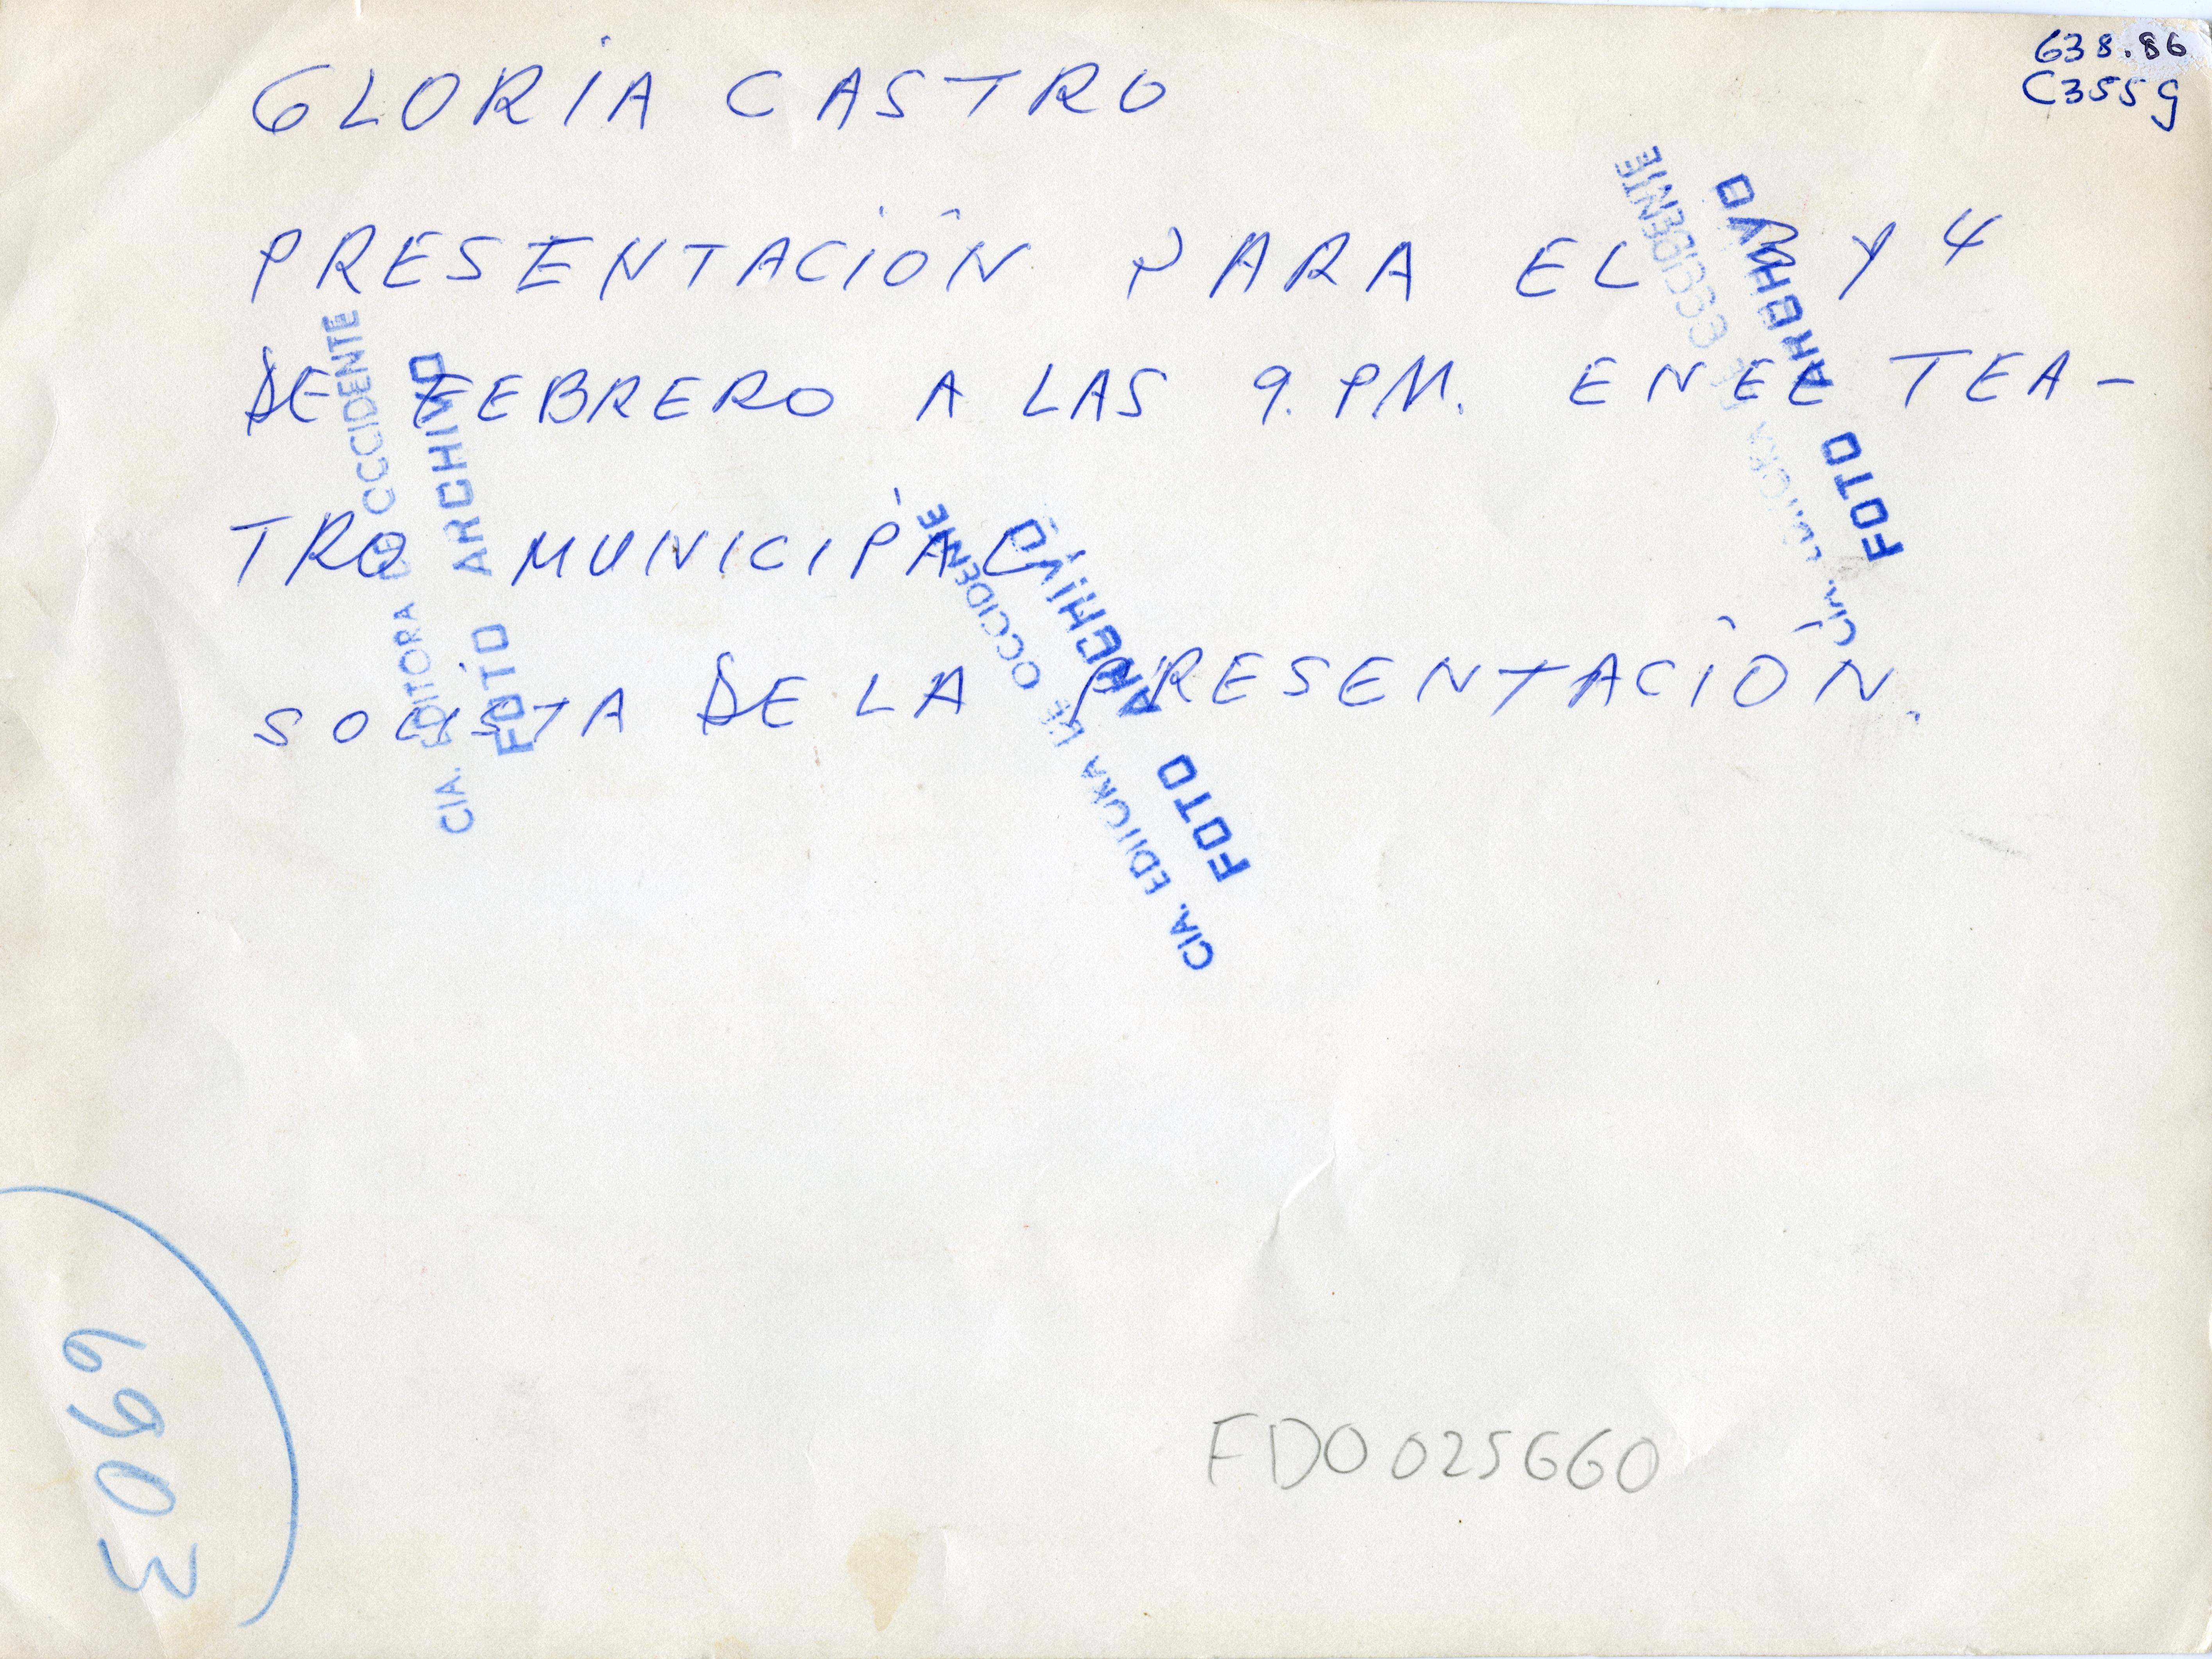 638.86
C355g
GLORIA CASTRO
PRESENTACIÓN PARA EL 3 Y 4
DE FEBRERO A LAS 9. P.M. EN EL TEA-
TRO MUNICIPAL
SOLISTA DE LA PRESENTACIÓN.
CIA. EDITORA DE OCCIDENTE
FOTO ARCHIVO
CIA. EDITORA DE OCCIDENTE
FOTO ARCHIVO
CIA. EDITORA DE OCCIDENTE
FOTO ARCHIVO
6903
FD0025660